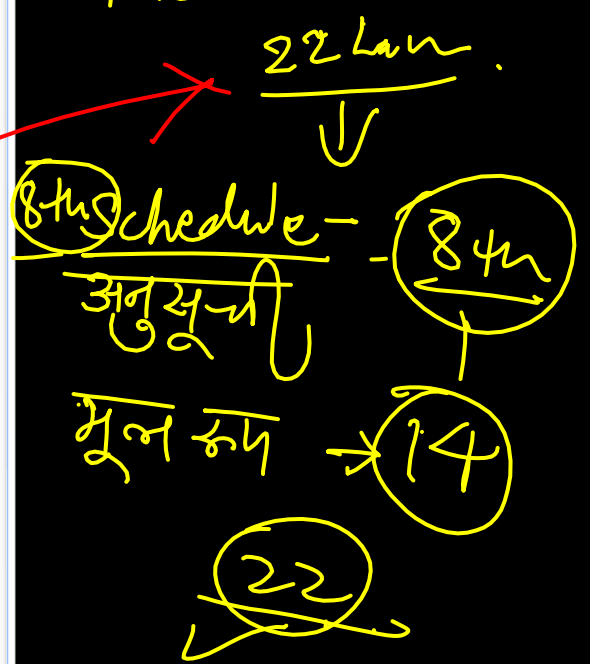 22 Lan
8th Schedule - - 8th
अनुसूची
मूल रूप → 14
22